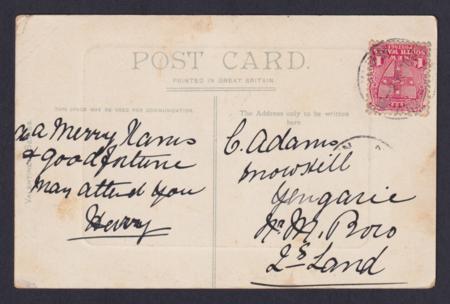 POST CARD.
PRINTED IN GREAT BRITAIN.
THIS SPACE MAY BE USED FOR COMMUNICATION.
The Address only to be written
here.
a Merry Xmas
& good fortune
may attend you
Henry
C. Adams
Snowhill
Yengarie
Nr M. Boro
Qs Land